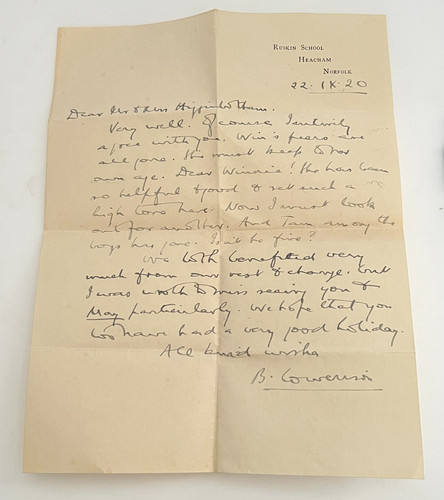 Ruskin School
Heacham
Norfolk
22. IX. 20
Dear Mr & Mrs Higginbotham.
Very well. Of course I entirely
agree with you. Win's fears are
all gone. She must keep to her
own age. Dear Winnie! She has been
so helpful & good & set such a
high tone here. Now I must look
out for another. And I am among the
boys has gone. Isn't he five?
We both benefited very
much from our rest & change. but
I was wroth to miss seeing you &
May particularly. We hope that you
too have had a very good holiday.
All kind wishes
B. Lowerison